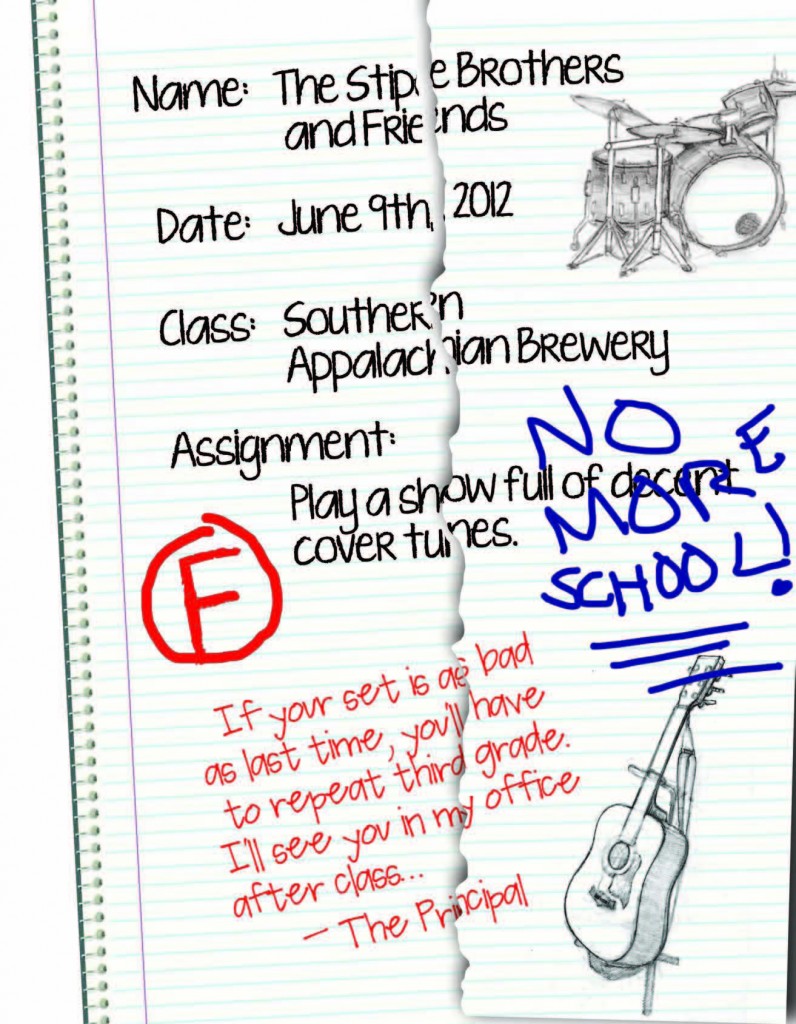 Name: The Stipe Brothers
and Friends
Date: June 9th, 2012
Class: Southern
Appalachian Brewery
Assignment:
Play a show full of decent
cover tunes.
NO
MORE
SCHOOL!
F
If your set is as bad
as last time, you'll have
to repeat third grade.
I'll see you in my office
after class...
- The Principal